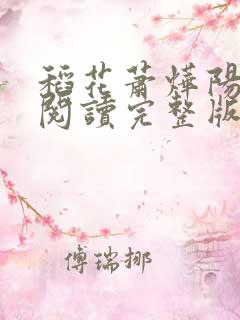 稻花蕭燁陽
閱讀完整版
傅瑞挪